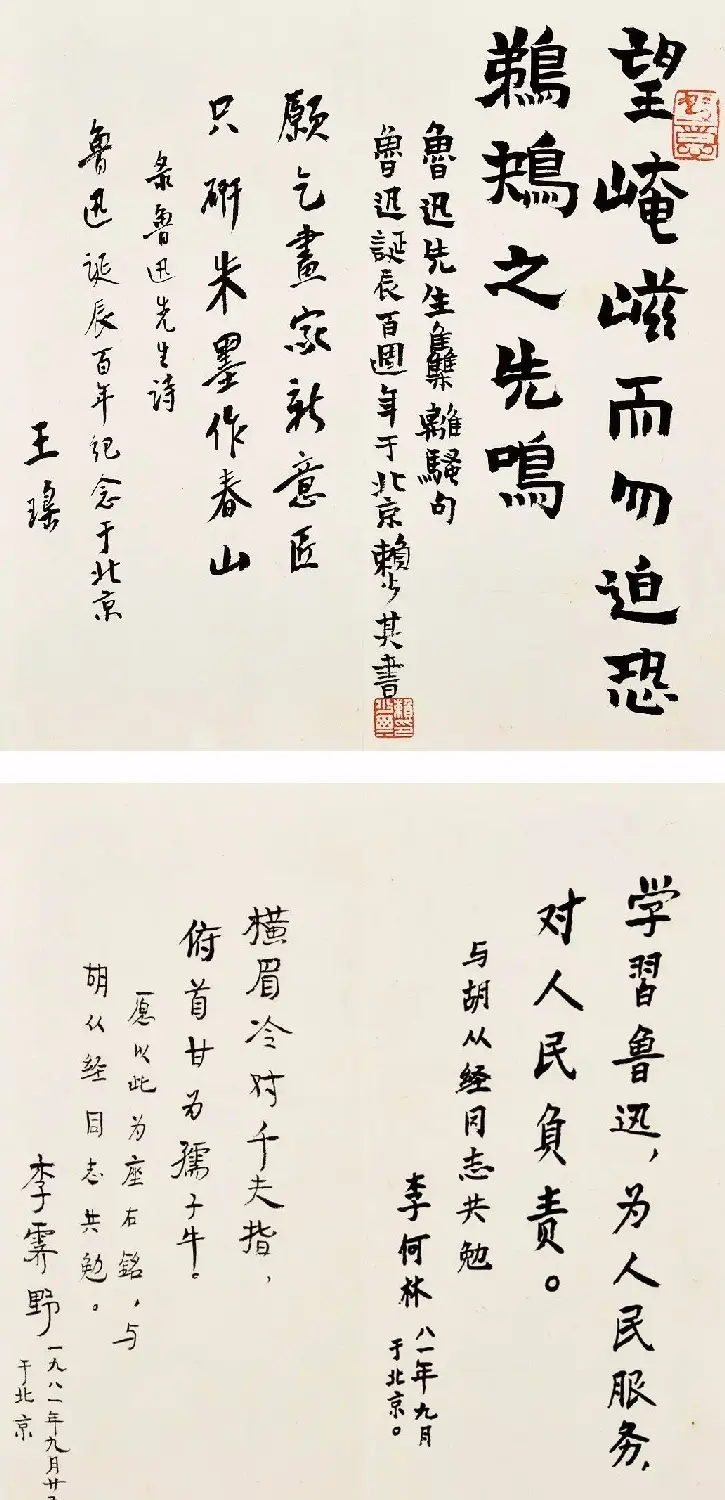 望崦嵫而勿迫恐
鵜鴃之先鳴
魯迅先生集離騷句
魯迅誕辰百週年于北京賴少其書
願乞畫家新意匠
只研朱墨作春山
录魯迅先生詩
魯迅诞辰百年纪念于北京
王瑤
学習鲁迅，为人民服务，
对人民負责。
与胡从经同志共勉
李何林
八一年九月
于北京。
横眉冷对千夫指，
俯首甘为孺子牛。
愿以此为座右銘，与
胡从经同志共勉。
李霽野
一九八一年九月廿
于北京